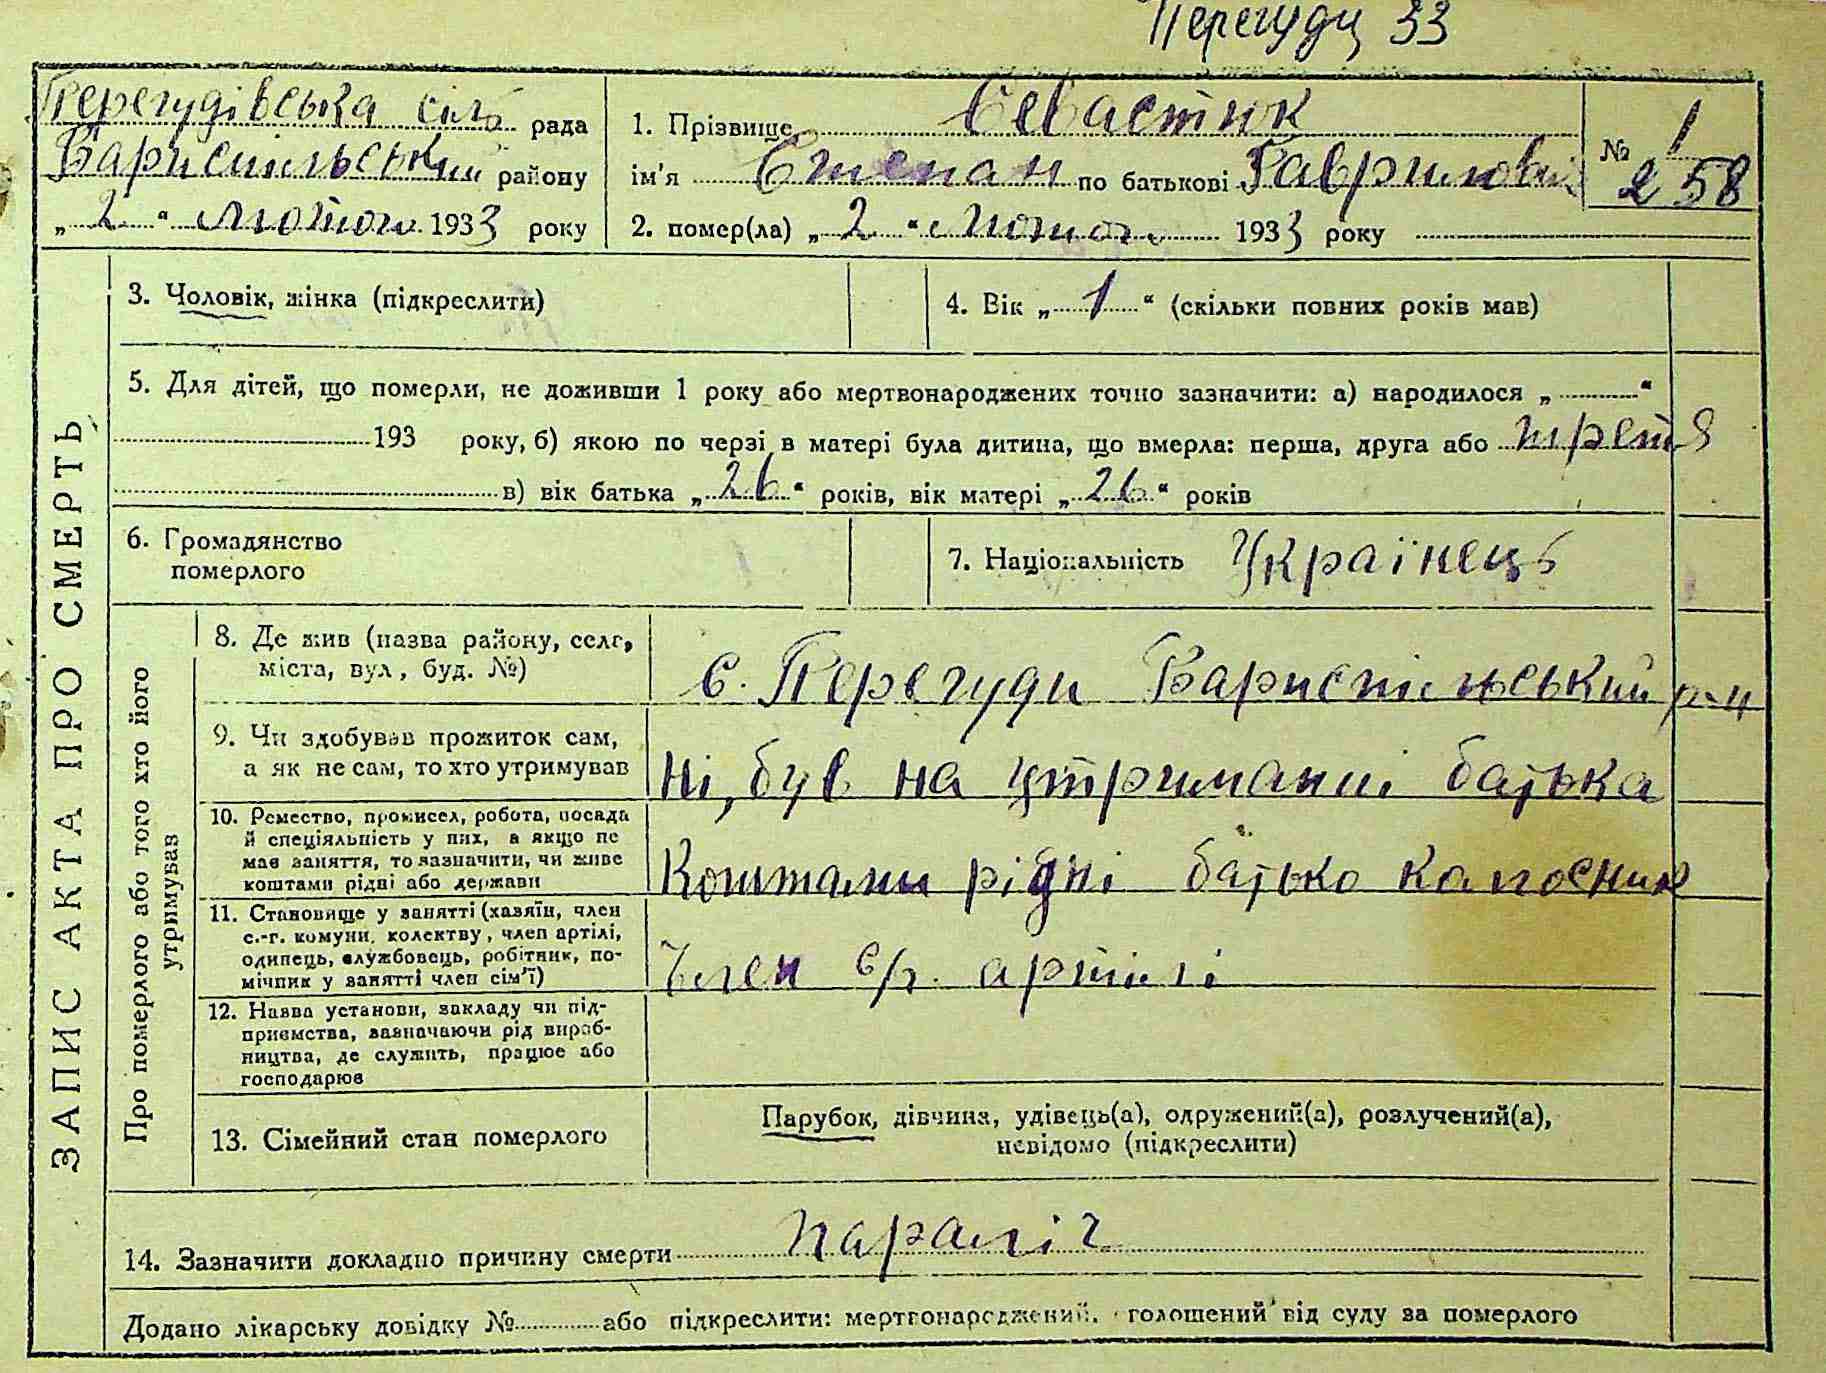 Перегуди 33
Перегудівська сіль рада
Бариспільський району
„ 2 “ Лютого 1933 року
1. Прізвище Севастюк
ім'я Степан по батькові Гаврилович
2. помер(ла) „ 2 “ Лютого 1933 року
№ 1
258
3. Чоловік, жінка (підкреслити)
4. Вік „ 1 “ (скільки повних років мав)
5. Для дітей, що померли, не доживши 1 року або мертвонароджених точно зазначити: а) народилося „ “
193 року, б) якою по черзі в матері була дитина, що вмерла: перша, друга або третя
в) вік батька „ 26 “ років, вік матері „ 26 “ років
6. Громадянство
померлого
7. Національність Українець
ЗАПИС АКТА ПРО СМЕРТЬ
Про померлого або того хто його
утримував
8. Де жив (назва району, села,
міста, вул., буд. №)
с. Перегуди Бариспільський р-н
9. Чи здобував прожиток сам,
а як не сам, то хто утримував
Ні, був на утриманні батька
10. Ремество, промисел, робота, посада
й спеціяльність у них, а якщо не
має заняття, то зазначити, чи живе
коштами рідні або держави
Коштами рідні батько колгосник
11. Становище у занятті (хазяїн, член
с.-г. комуни, колектву, член артілі,
одинець, службовець, робітник, по-
мічник у занятті член сім'ї)
Член с/г. артілі
12. Назва установи, закладу чи під-
приємства, зазначаючи рід вироб-
ництва, де служить, працює або
господарює
13. Сімейний стан померлого
Парубок, дівчина, удівець(а), одружений(а), розлучений(а),
невідомо (підкреслити)
14. Зазначити докладно причину смерти параліч
Додано лікарську довідку № або підкреслити: мертвонароджений, оголошений від суду за померлого